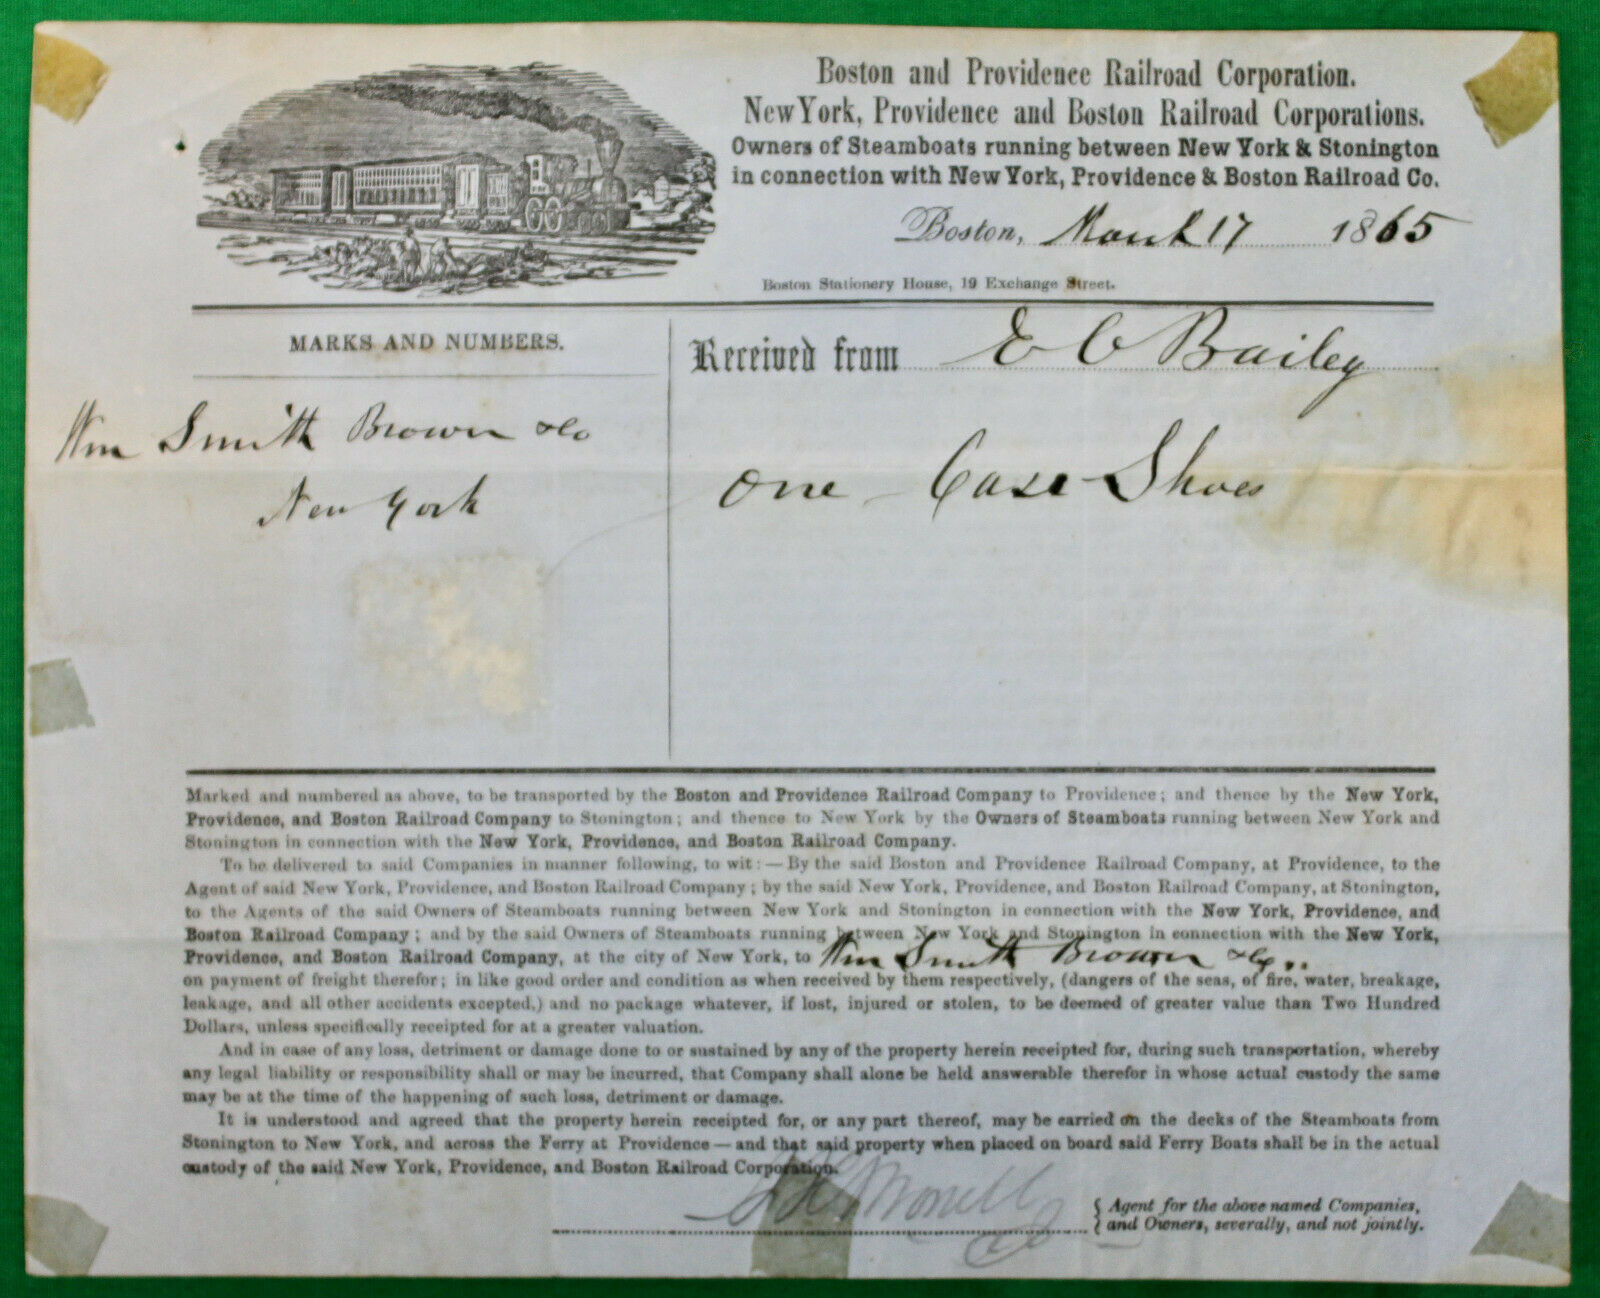 Boston and Providence Railroad Corporation.
New York, Providence and Boston Railroad Corporations.
Owners of Steamboats running between New York & Stonington
in connection with New York, Providence & Boston Railroad Co.
Boston, March 17 1865
Boston Stationery House, 19 Exchange Street.
MARKS AND NUMBERS.
Wm Smith Brown & Co
New York
Received from E C Bailey
One Case Shoes
Marked and numbered as above, to be transported by the Boston and Providence Railroad Company to Providence; and thence by the New York,
Providence, and Boston Railroad Company to Stonington; and thence to New York by the Owners of Steamboats running between New York and
Stonington in connection with the New York, Providence, and Boston Railroad Company.
To be delivered to said Companies in manner following, to wit:—By the said Boston and Providence Railroad Company, at Providence, to the
Agent of said New York, Providence, and Boston Railroad Company; by the said New York, Providence, and Boston Railroad Company, at Stonington,
to the Agents of the said Owners of Steamboats running between New York and Stonington in connection with the New York, Providence, and
Boston Railroad Company; and by the said Owners of Steamboats running between New York and Stonington in connection with the New York,
Providence, and Boston Railroad Company, at the city of New York, to Wm Smith Brown & Co,
on payment of freight therefor; in like good order and condition as when received by them respectively, (dangers of the seas, of fire, water, breakage,
leakage, and all other accidents excepted,) and no package whatever, if lost, injured or stolen, to be deemed of greater value than Two Hundred
Dollars, unless specifically receipted for at a greater valuation.
And in case of any loss, detriment or damage done to or sustained by any of the property herein receipted for, during such transportation, whereby
any legal liability or responsibility shall or may be incurred, that Company shall alone be held answerable therefor in whose actual custody the same
may be at the time of the happening of such loss, detriment or damage.
It is understood and agreed that the property herein receipted for, or any part thereof, may be carried on the decks of the Steamboats from
Stonington to New York, and across the Ferry at Providence—and that said property when placed on board said Ferry Boats shall be in the actual
custody of the said New York, Providence, and Boston Railroad Corporation.
Agent for the above named Companies,
and Owners, severally, and not jointly.